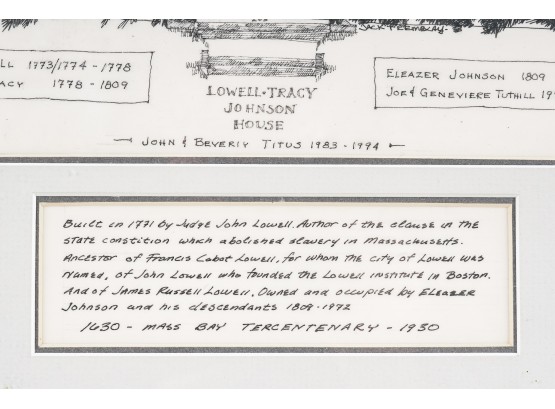 Jack Tremblay
LL 1773/1774 - 1778
ACY 1778 - 1809
Eleazer Johnson 1809
Joe & Genevieve Tuthill 19
Lowell·Tracy
Johnson
House
John & Beverly Titus 1983-1994
Built in 1771 by Judge John Lowell. Author of the clause in the
state constition which abolished slavery in Massachusetts.
Ancestor of Francis Cabot Lowell, for whom the city of Lowell was
named, of John Lowell who founded the Lowell Institute in Boston.
And of James Russell Lowell. Owned and occupied by Eleazer
Johnson and his descendants 1809-1972
1630 - Mass Bay Tercentenary - 1930